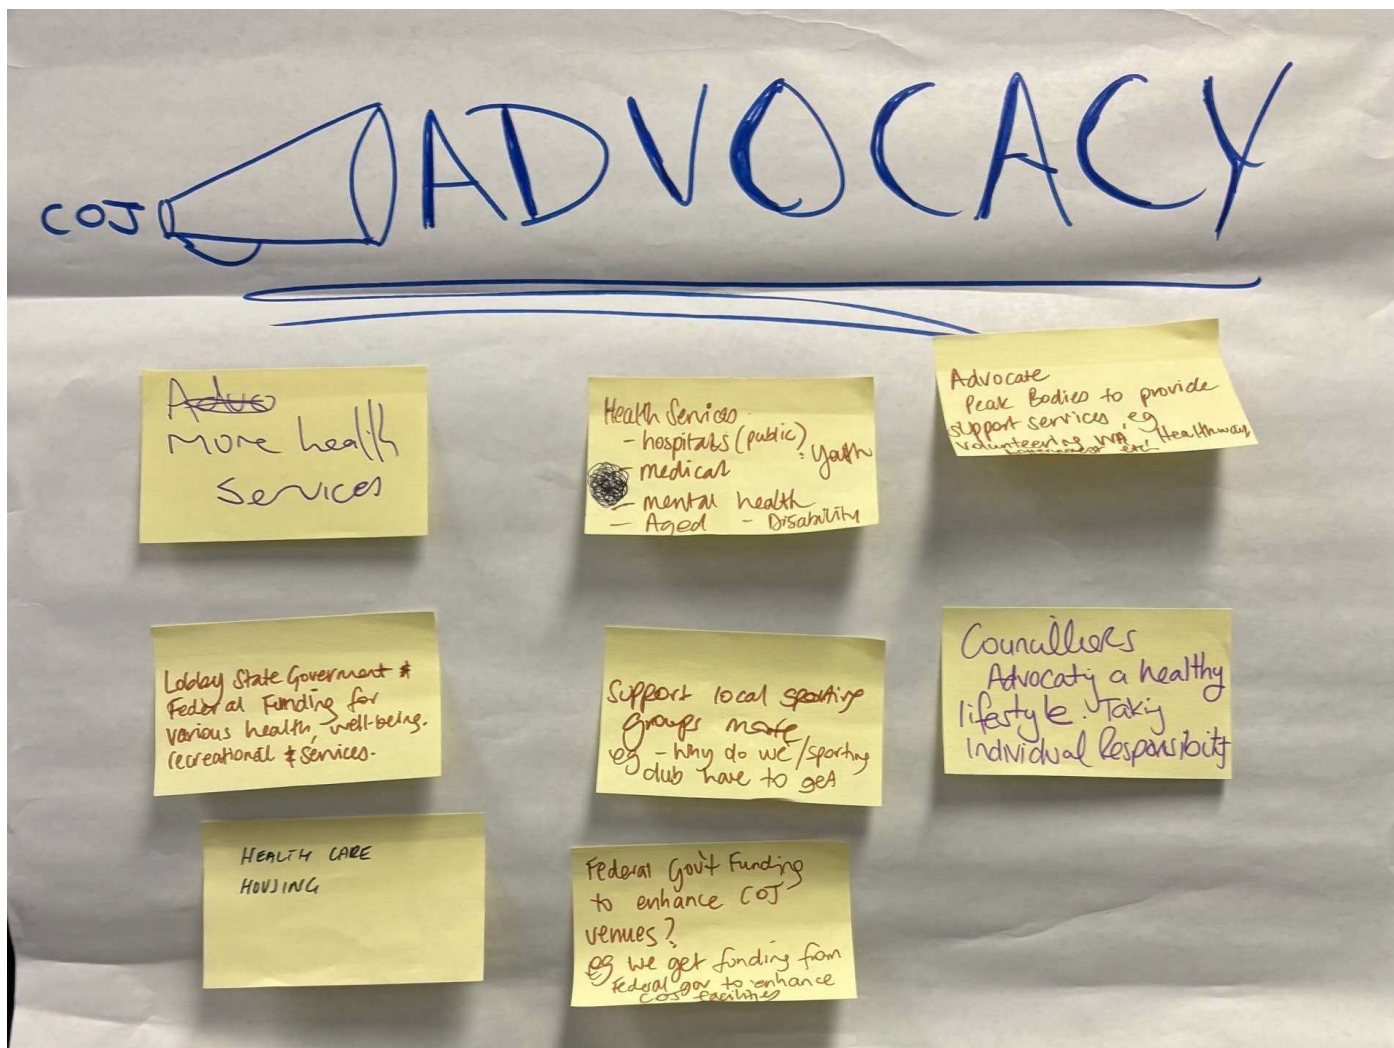 COJ ADVOCACY
Advo
More health
Services
Health Services
- hospitals (public)
- medical
Youth
- mental health
- Aged - Disability
Advocate
Peak Bodies to provide
support services, eg
Volunteering WA, Healthway,
etc.
Lobby State Goverment &
Federal Funding for
various health, well-being.
recreational & services.
Support local sporting
groups more
eg - Why do we/sporting
club have to get
Councillers
Advocaty a healthy
lifestyle. Takig
Individual Responsibility
HEALTH CARE
HOUSING
Federal Gov't Funding
to enhance COJ
venues?
eg we get funding from
Federal gov to enhance
COJ facilities